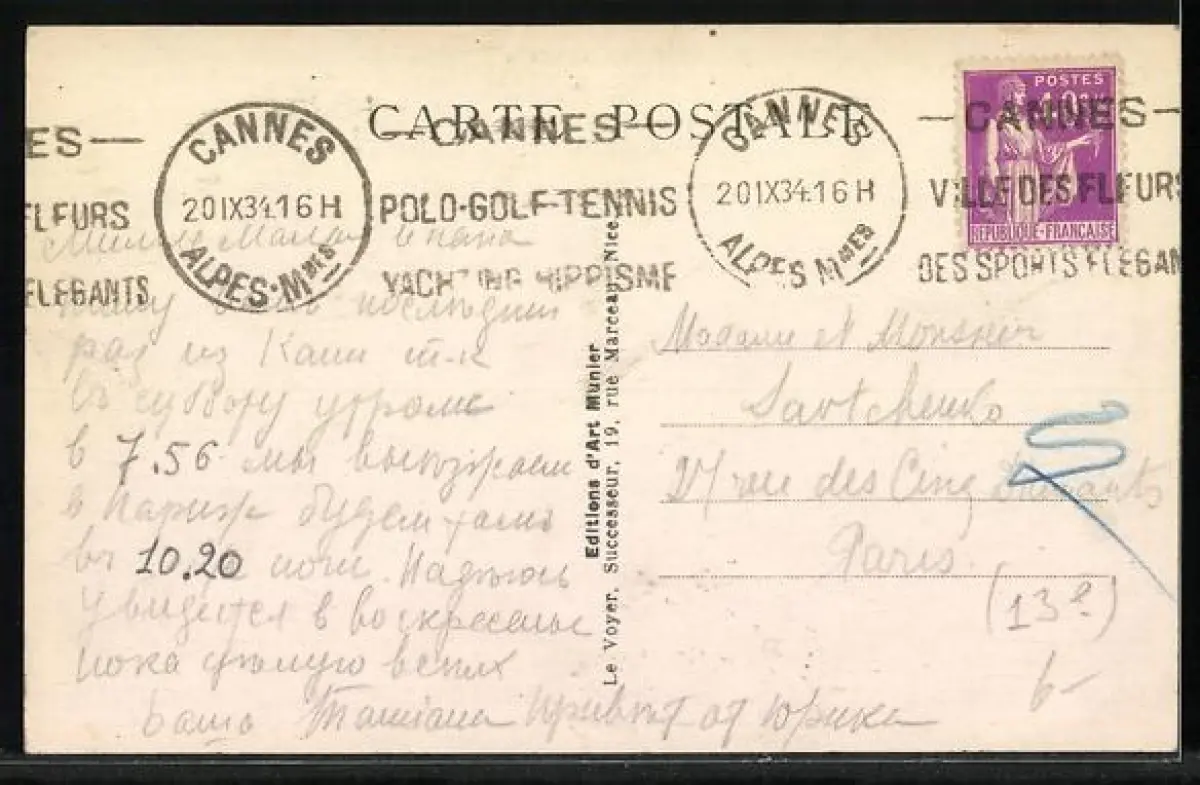 CARTE POSTALE
CANNES
20 IX 34 16 H
ALPES-Mmes
ES —
FLEURS
ELEGANTS
— CANNES —
POLO-GOLF-TENNIS
YACHTING HIPPISME
CANNES
20 IX 34 16 H
ALPES Mmes
— CANNES —
VILLE DES FLEURS
DES SPORTS ELEGAN
POSTES
REPUBLIQUE-FRANÇAISE
Милые Мама и папа
пишу Вам последний
раз из Канн т-к
въ субботу утромъ
в 7.56 мы выезжаем
в Париж будем там
въ 10.20 ночи. Надеюсь
увидется в воскресенье
пока целую всех
Ваша Татиана Привет от Юрика
Editions d'Art Munier
Le Voyer, Successeur, 19, rue Marceau, Nice
Madame et Monsieur
Savtchenko
27 rue des Cinq Diamants
Paris.
(13e)
6-